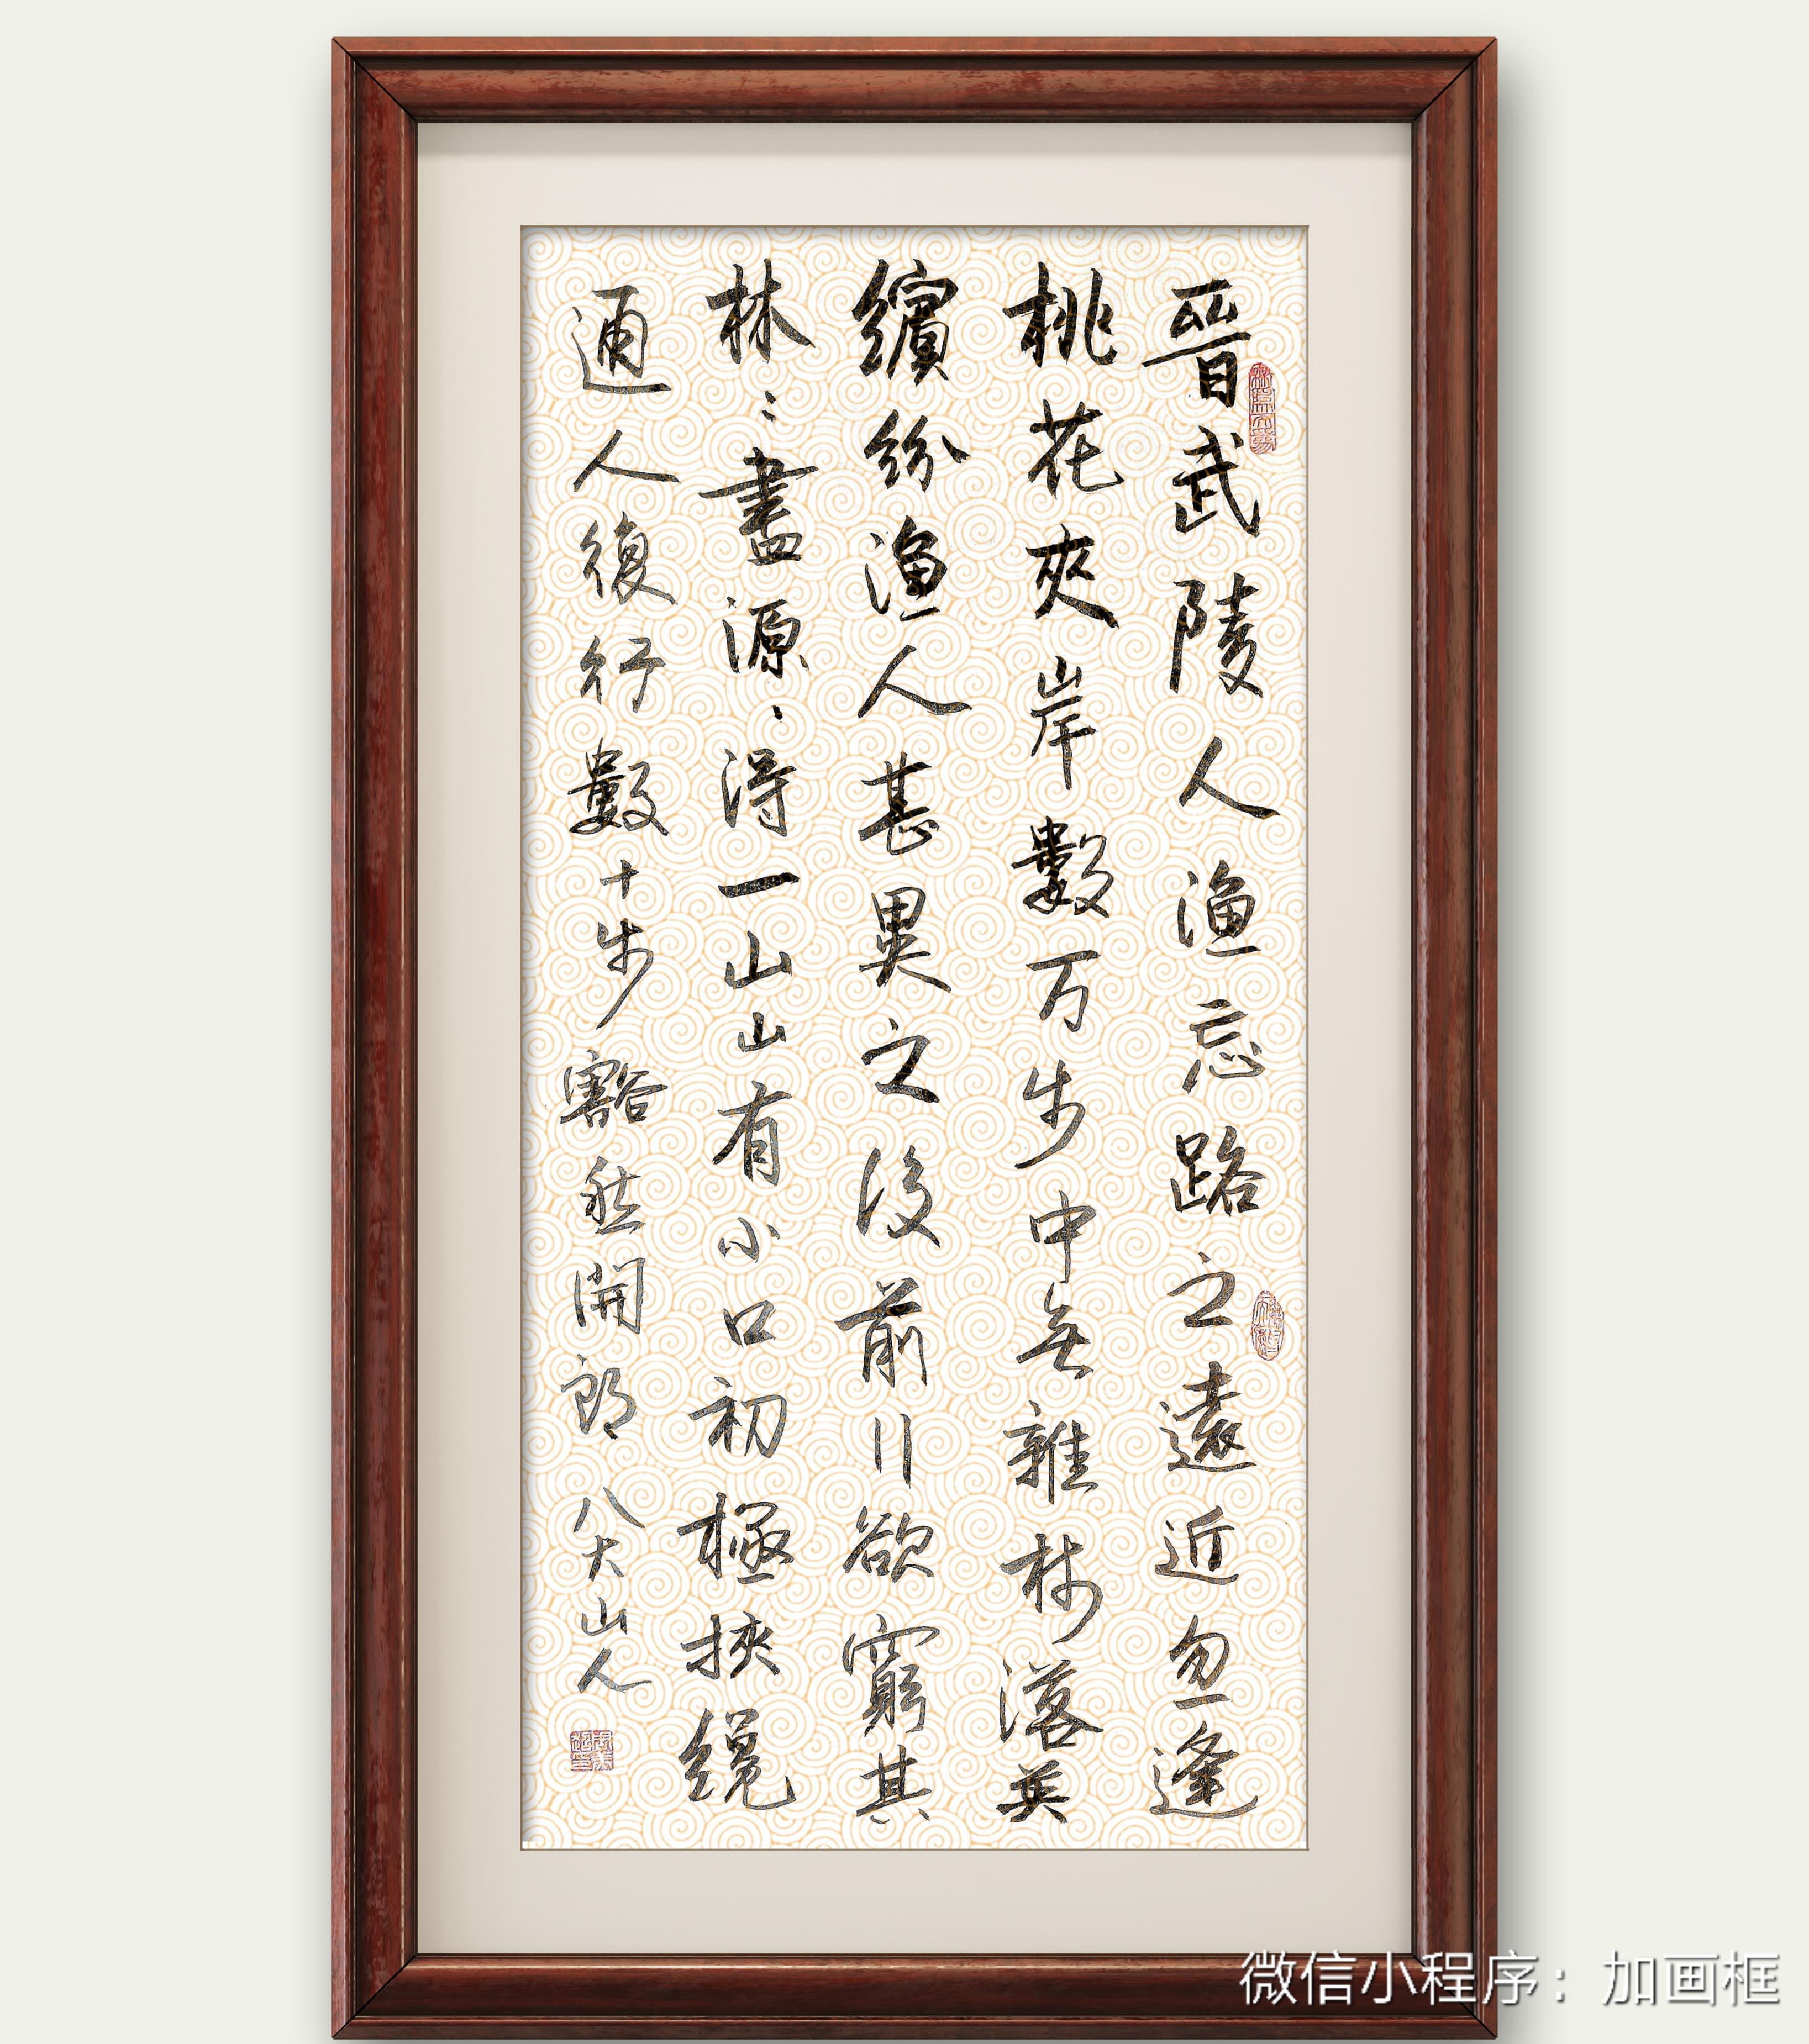 晉武陵人漁忘路之遠近忽逢
桃花夾岸數万步中無雜樹落英
繽紛漁人甚異之復前行欲窮其
林〻盡源〻得一山山有小口初極挾纔
通人復行數十步豁然開郎 八大山人
微信小程序：加画框